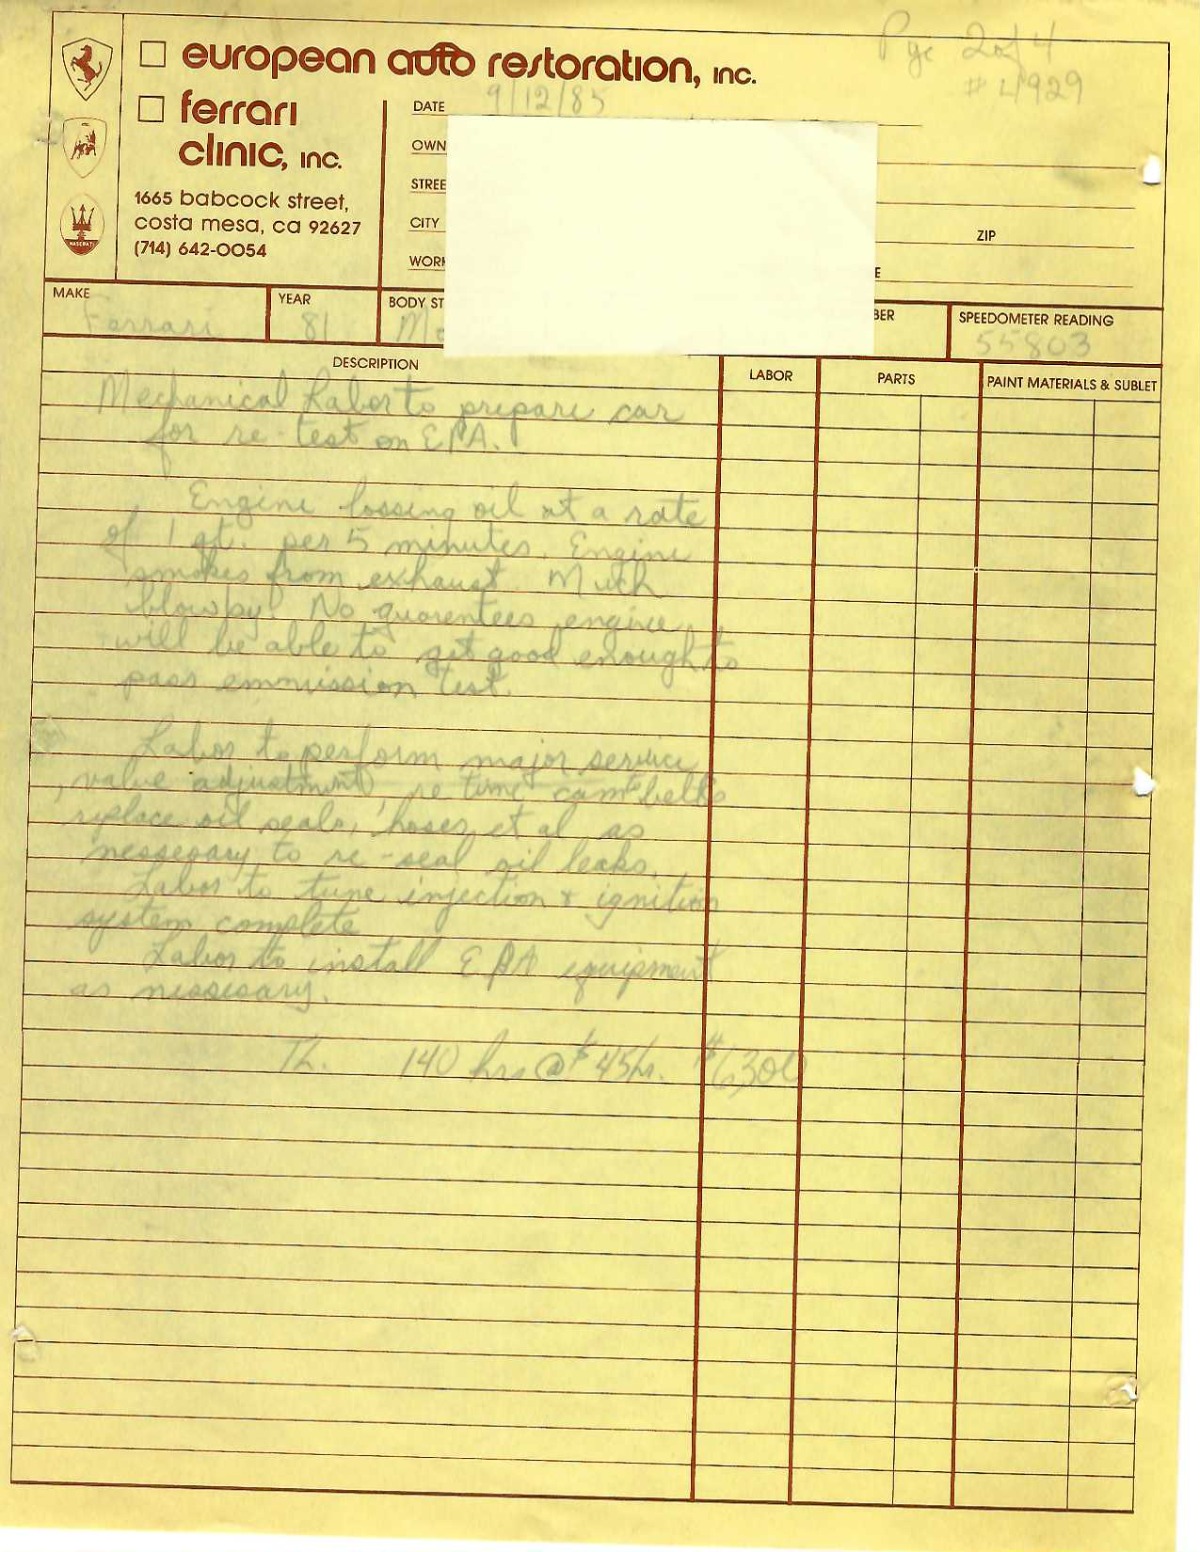 Pge 2 of 4
# 4929
european auto restoration, inc.
ferrari
clinic, inc.
1665 babcock street,
costa mesa, ca 92627
(714) 642-0054
DATE 9/12/85
OWN
STREE
CITY
ZIP
WORK
E
MAKE Ferrari
YEAR 81
BODY ST Mo
BER
SPEEDOMETER READING 55803
DESCRIPTION
LABOR
PARTS
PAINT MATERIALS & SUBLET
MASERATI
Mechanical Labor to prepare car
for re-test on EPA.
Engine lossing oil at a rate
of 1 qt. per 5 minutes. Engine
smokes from exhaust. Much
blowby! No guarentees engine
will be able to get good enough to
pass emmission test.
Labor to perform major service,
, valve adjustment, re time cam belts
replace oil seals, hoses, et al as
nessesary to re-seal oil leaks.
Labor to tune injection & ignition
system complete
Labor to install EPA equipment
as nessesary.
140 hrs @ $45 hr. $6300